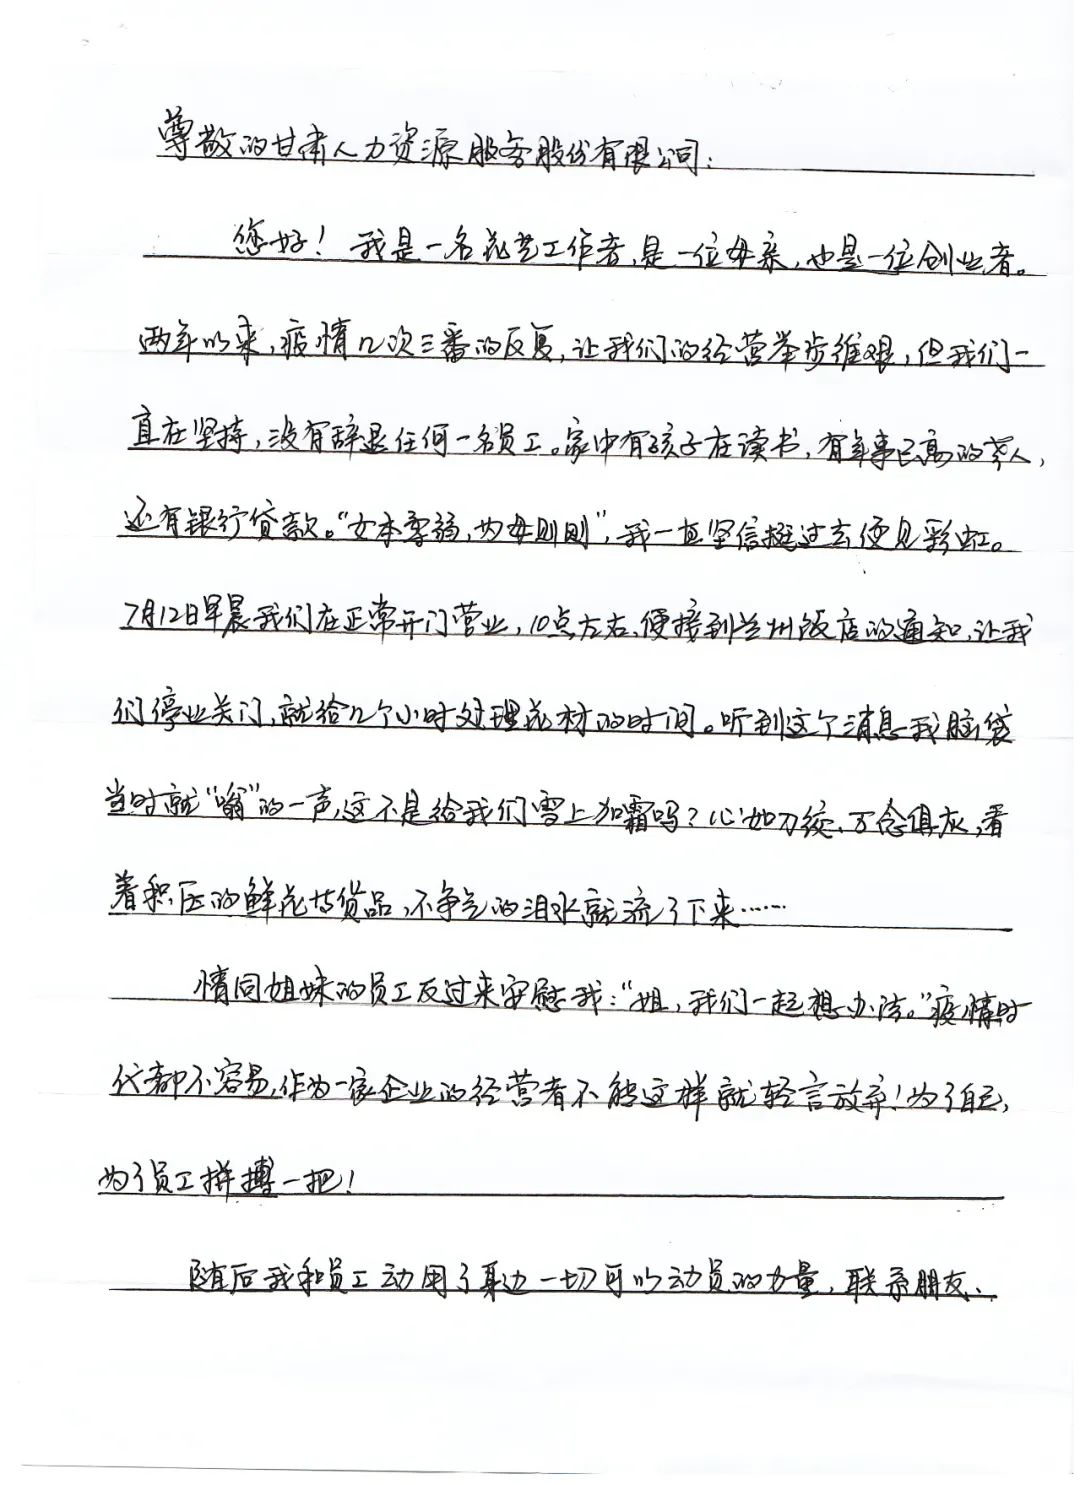 尊敬的甘肃人力资源服务股份有限公司：
您好！我是一名花艺工作者，是一位母亲，也是一位创业者。
两年以来，疫情几次三番的反复，让我们的经营举步维艰，但我们一
直在坚持，没有辞退任何一名员工。家中有孩子在读书，有年事已高的老人，
还有银行贷款。“女本柔弱，为母则刚”，我一直坚信挺过去便见彩虹。
7月12日早晨我们在正常开门营业，10点左右，便接到兰州饭店的通知，让我
们停业关门，就给几个小时处理花材的时间。听到这个消息我脑袋
当时就“嗡”的一声，这不是给我们雪上加霜吗？心如刀绞、万念俱灰，看
着积压的鲜花与货品，不争气的泪水就流了下来……
情同姐妹的员工反过来安慰我：“姐，我们一起想办法。”疫情时
代都不容易，作为一家企业的经营者不能这样就轻言放弃！为了自己，
为了员工拼搏一把！
随后我和员工动用了身边一切可以动员的力量，联系朋友、